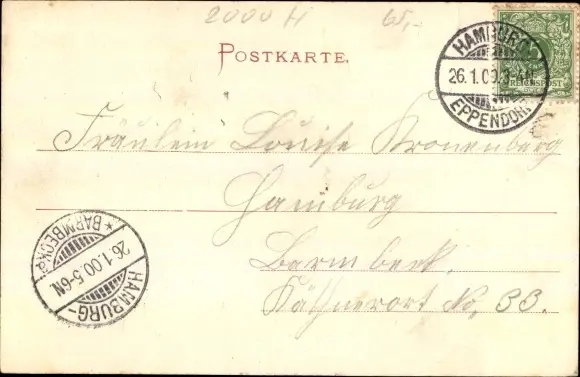 2000 H 65,-
POSTKARTE.
HAMBURG
26.1.00.3-4N
EPPENDORF
5
REICHSPOST
Fräulein Louise Kronenberg
Hamburg
Barmbeck.
Käthnerort No. 33.
HAMBURG-
26.1.00.5-6N.
* BARMBECK